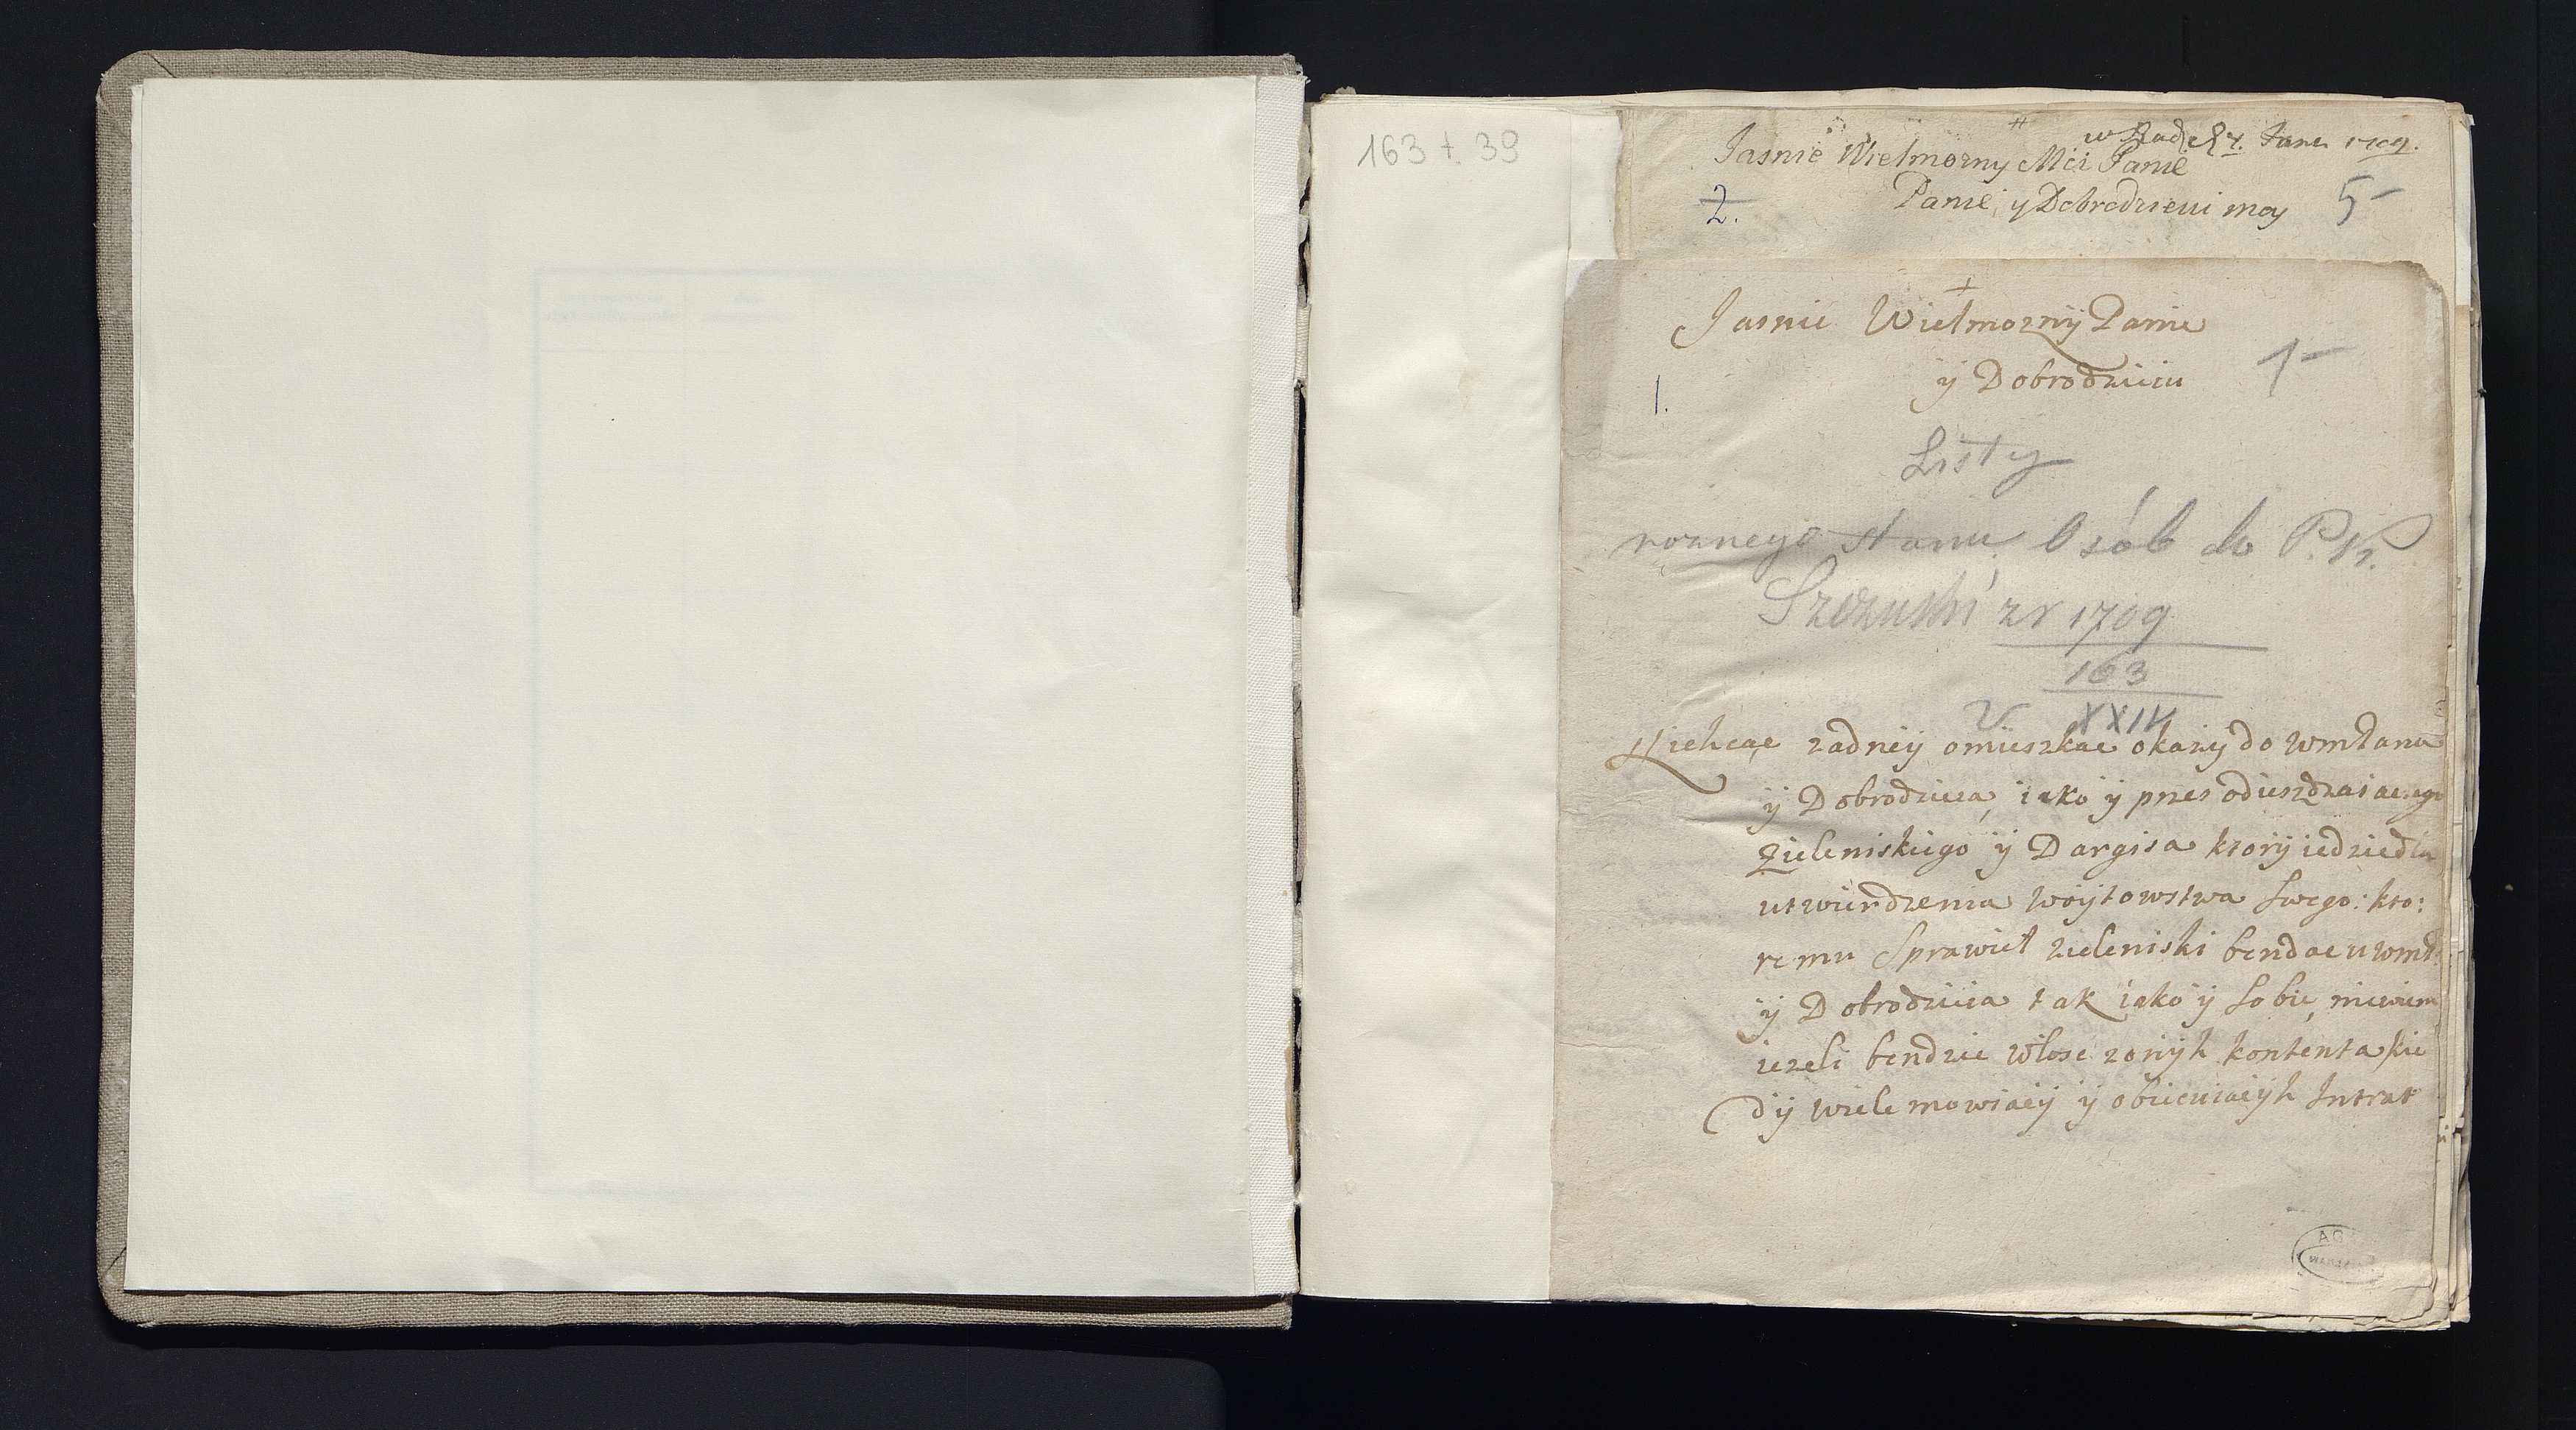 163 t. 39
w Radz 4. Janu 1709.
Jasnie Wielmozny Mci Panie
2. Panie, y Dobrodzieiu moy 5-
+
Jasnie Wielmozny Panie
ÿ Dobrodzieiu 1-
1.
Listy
roznego stanu Osób do P. K.
Szczuki z r 1709
163
V XXIV
Niehcąc zadneÿ omieszkac okazy do wmPana
ÿ Dobrodzieia, iako ÿ przes odiezdzaiacego
Zieleniskiego ÿ Dargisa ktorÿ iedzie dla
utwierdzenia woÿtowstwa Swego: kto:
remu Sprawiel zieleniski bendac u wmP
ÿ Dobrodzieia tak iako ÿ Sobie, niewiem
iezeli bendzie włosc zonÿh kontenta kie
dÿ wiele mowiacÿ ÿ obiecuiacÿh Intrat
AG